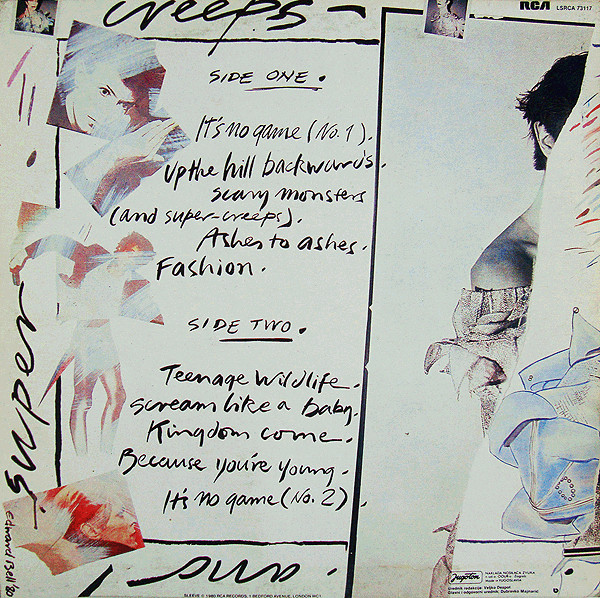 creeps-
RCA LSRCA 73117
SIDE ONE.
It's no game (No. 1).
Up the hill backwards.
scary monsters
(and super-creeps).
Ashes to ashes.
Fashion.
SIDE TWO.
Teenage wildlife.
scream like a baby.
Kingdom come.
Because you're young.
It's no game (No. 2).
super
Edward Bell 80
Jugoton
NAKLADA NOSILACA ZVUKA
Made in YUGOSLAVIA
SLEEVE © 1980 RCA RECORDS, 1 BEDFORD AVENUE, LONDON WC1